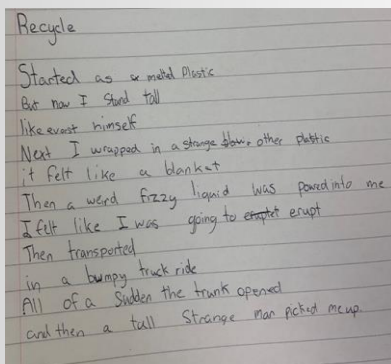 Recycle
Started as a melted Plastic
But now I stand tall
like everst himself
Next I wrapped in a strange other plastic
it felt like a blanket
Then a werd fizzy liquid was powed into me
I felt like I was going to erupt
Then transported
in a bumpy truck ride
All of a Sudden the trunk opened
and then a tall Strange man picked me up.